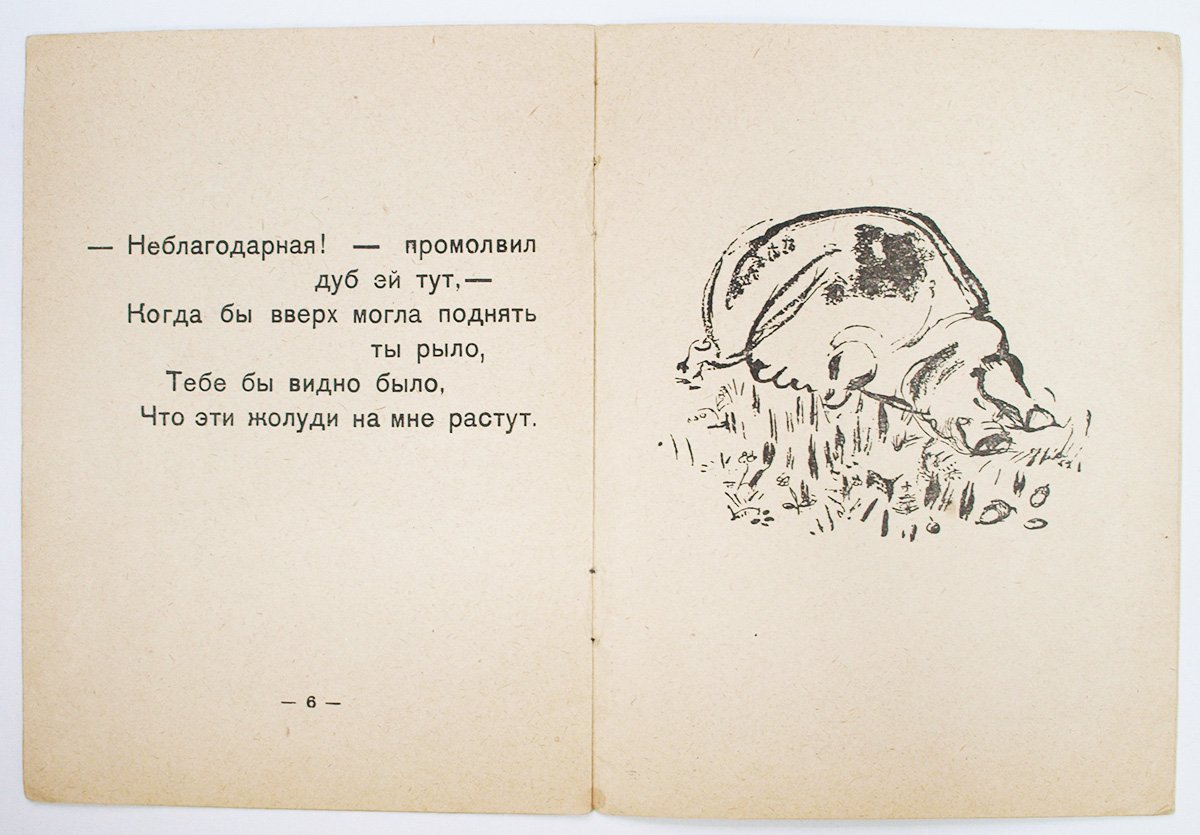 — Неблагодарная! — промолвил
дуб эй тут,—
Когда бы вверх могла поднять
ты рыло,
Тебе бы видно было,
Что эти жолуди на мне растут.
— 6 —